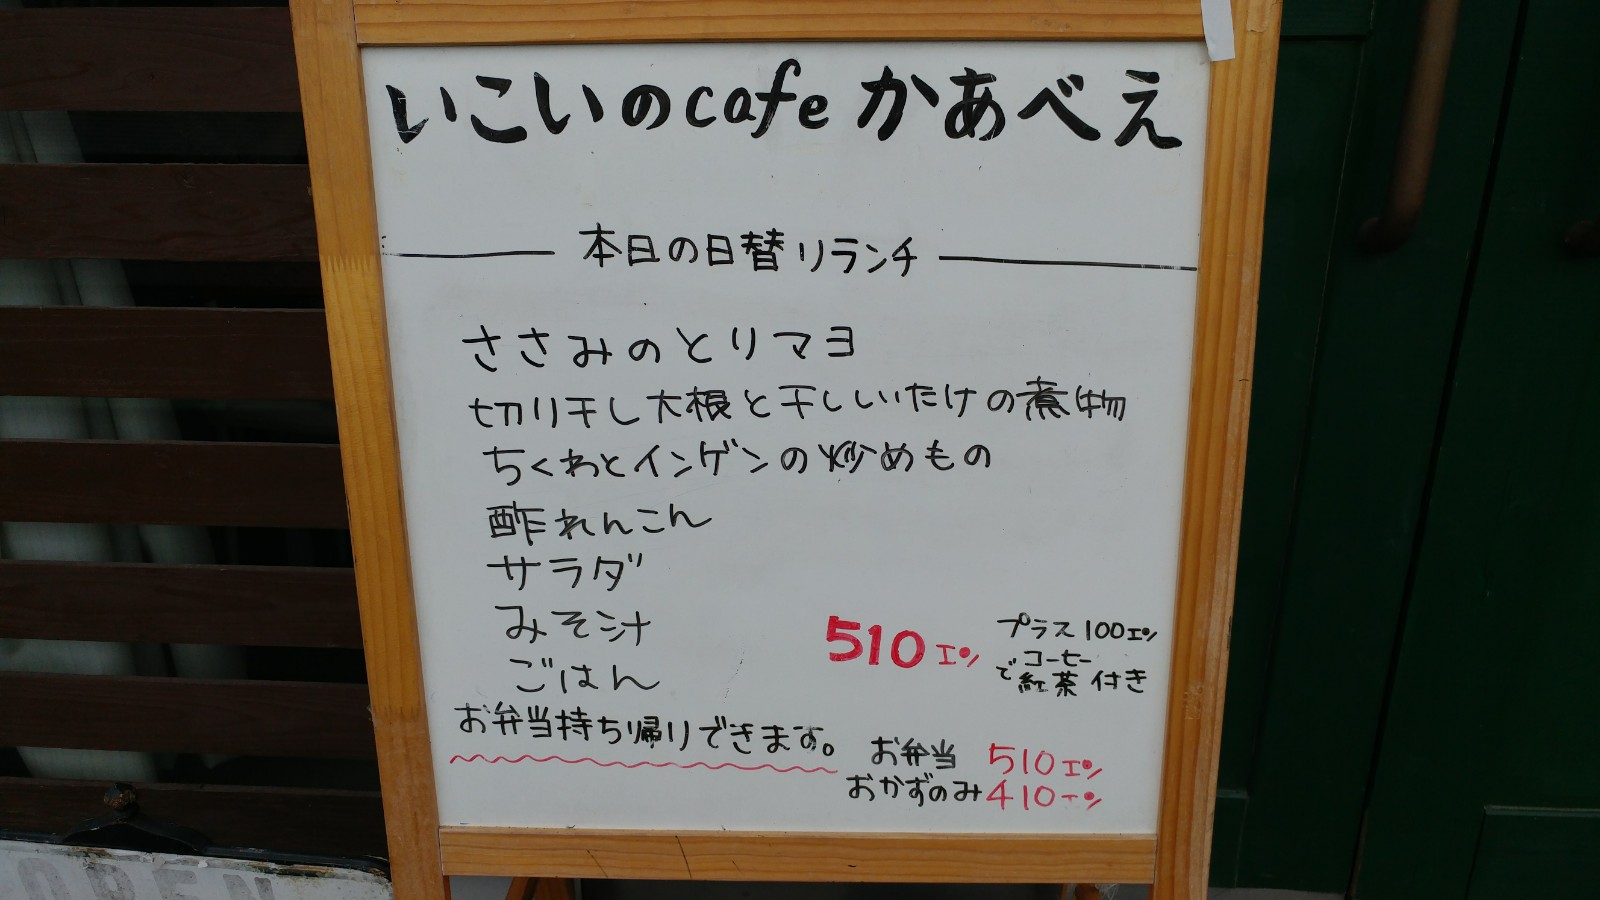 いこいのcafe かあべえ
本日の日替りランチ
ささみのとりマヨ
切り干し大根と干ししいたけの煮物
ちくわとインゲンの炒めもの
酢れんこん
サラダ
みそ汁
ごはん
510エン
プラス100エン
で コーヒー
紅茶 付き
お弁当持ち帰りできます。
お弁当 510エン
おかずのみ410エン
OPEN